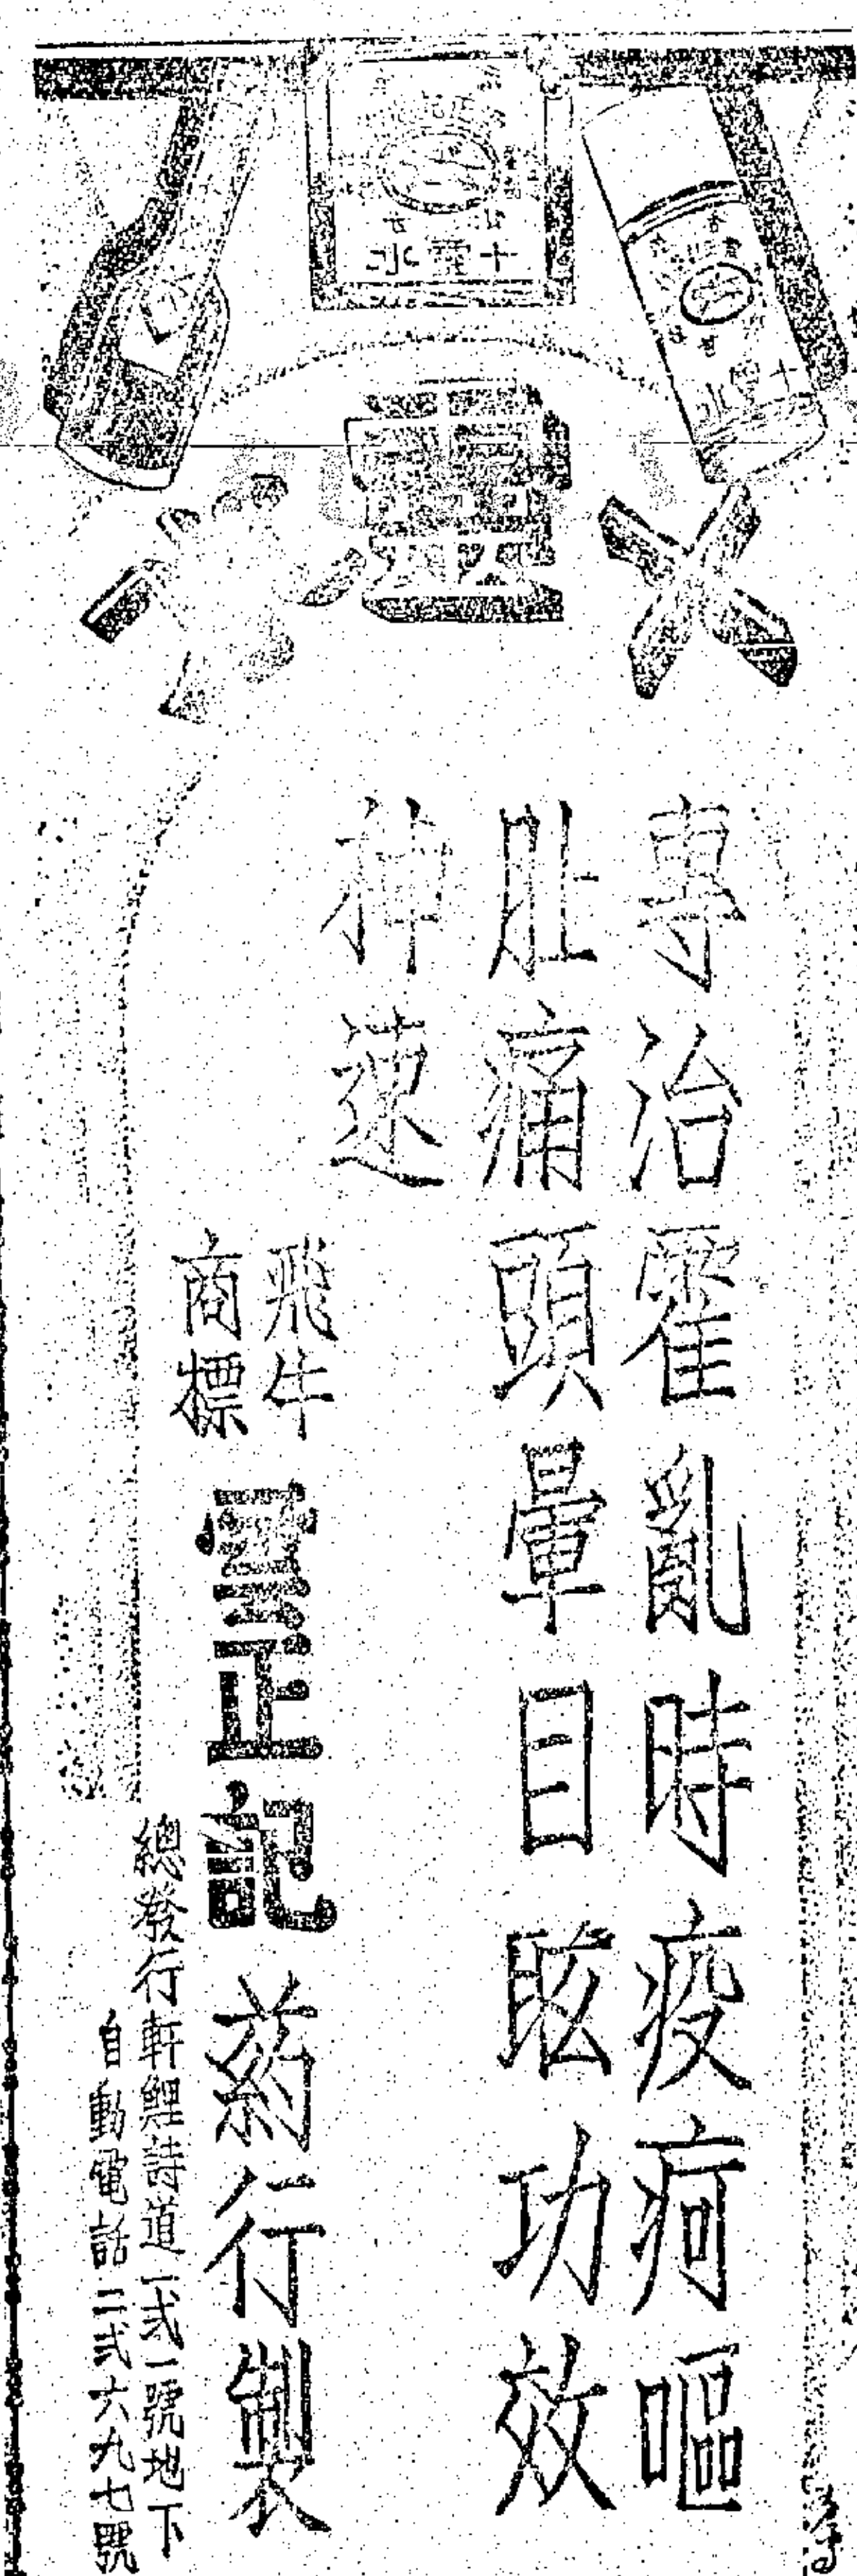 十靈水
十靈水
十靈水
專治霍亂時疫疴嘔
肚痛頭暈目眩功效
神速
飛牛
商標
雲正記
葯行製
總發行軒鯉詩道一弍一號地下
自動電話二弍六九七號